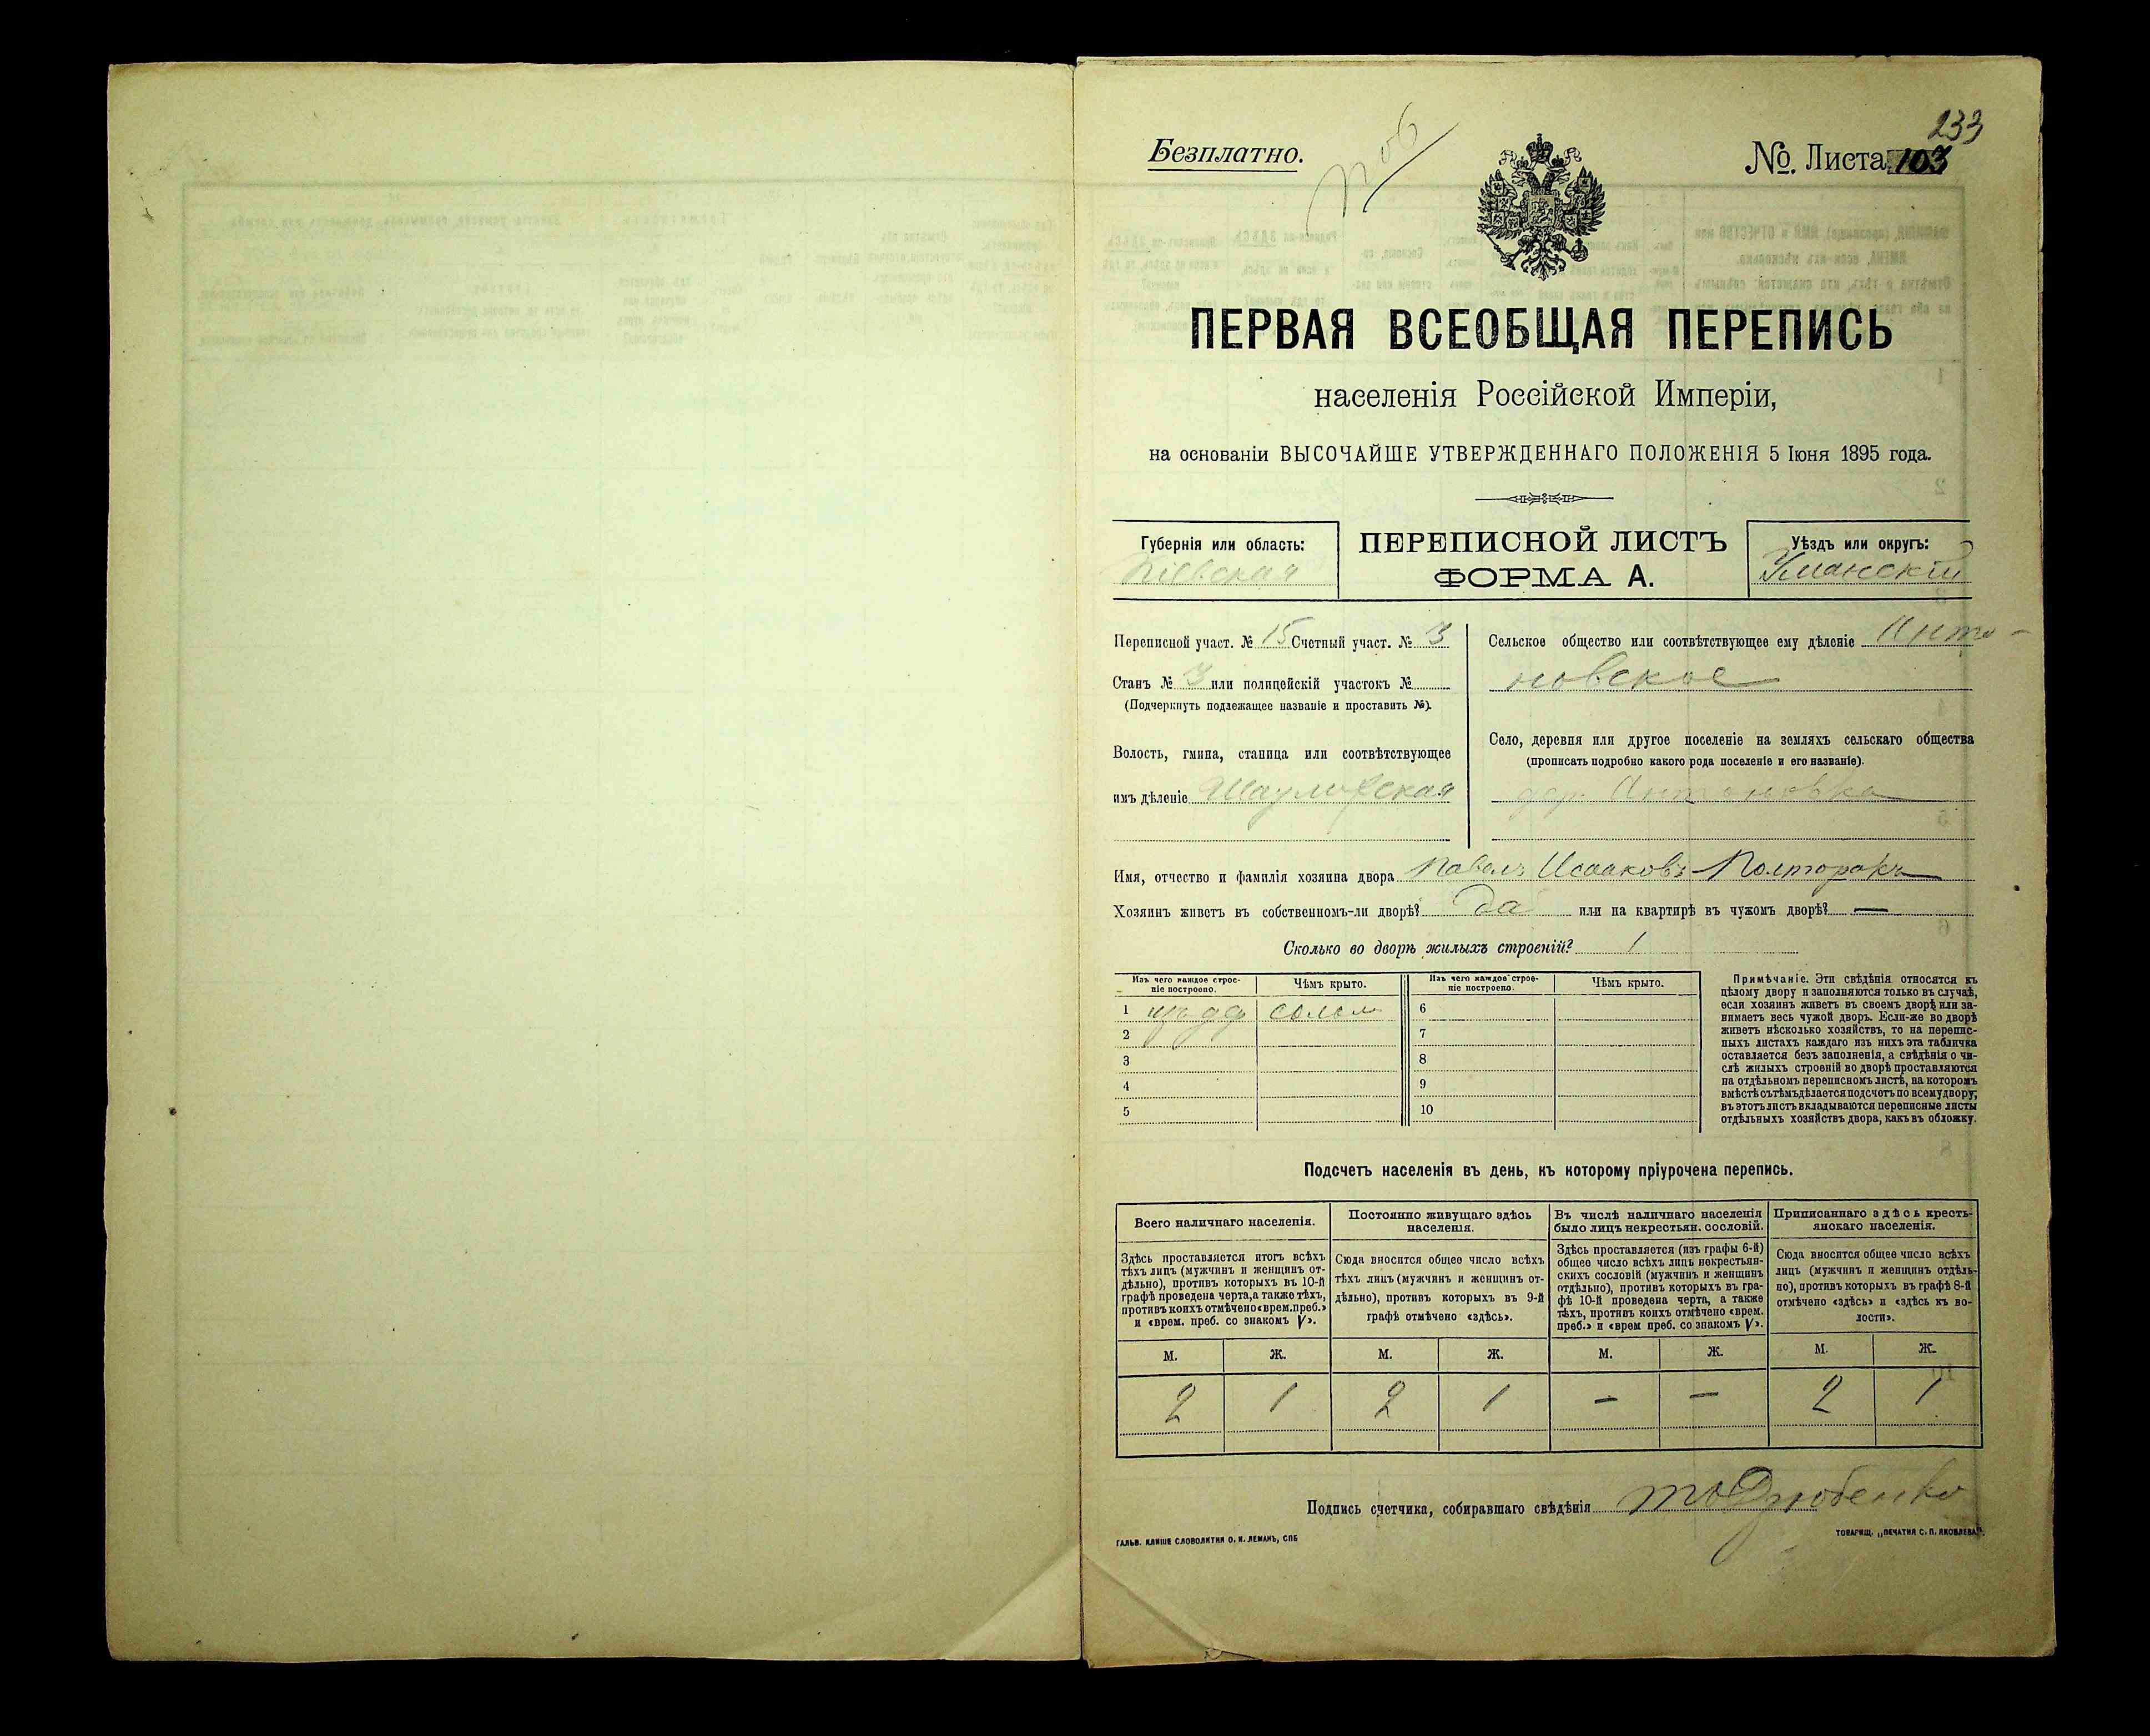 233
Безплатно.
Пов
№. Листа 103
ПЕРВАЯ ВСЕОБЩАЯ ПЕРЕПИСЬ
населенія Россійской Имперіи,
на основаніи ВЫСОЧАЙШЕ УТВЕРЖДЕННАГО ПОЛОЖЕНІЯ 5 Іюня 1895 года.
Губернія или область:
Кіевская
ПЕРЕПИСНОЙ ЛИСТЪ
ФОРМА А.
Уѣздъ или округъ:
Уманскій
Переписной участ. № 15 Счетный участ. № 3
Станъ № 3 или полицейскій участокъ №
(Подчеркнуть подлежащее названіе и проставить №).
Волость, гмина, станица или соотвѣтствующее
имъ дѣленіе
Сельское общество или соотвѣтствующее ему дѣленіе Анто-
новское
Село, деревня или другое поселеніе на земляхъ сельскаго общества
(прописать подробно какого рода поселеніе и его названіе).
дер. Антоновка
Имя, отчество и фамилія хозяина двора Павелъ Исааковъ Полторакъ
Хозяинъ живетъ въ собственномъ-ли дворѣ? Да или на квартирѣ въ чужомъ дворѣ? —
Сколько во дворѣ жилыхъ строеній? 1
Изъ чего каждое строе-
ніе построено.
Чѣмъ крыто.
Изъ чего каждое строе-
ніе построено.
Чѣмъ крыто.
1 изъ дер солом 6
2 7
3 8
4 9
5 10
Примѣчаніе. Эти свѣдѣнія относятся къ
цѣлому двору и заполняются только въ случаѣ,
если хозяинъ живетъ въ своемъ дворѣ или за-
нимаетъ весь чужой дворъ. Если-же во дворѣ
живетъ нѣсколько хозяйствъ, то на перепис-
ныхъ листахъ каждаго изъ нихъ эта табличка
оставляется безъ заполненія, а свѣдѣнія о чи-
слѣ жилыхъ строеній во дворѣ проставляются
на отдѣльномъ переписномъ листѣ, на которомъ
вмѣстѣ съ тѣмъ дѣлается подсчетъ по всему двору;
въ этотъ листъ вкладываются переписные листы
отдѣльныхъ хозяйствъ двора, какъ въ обложку.
Подсчетъ населенія въ день, къ которому пріурочена перепись.
Всего наличнаго населенія.
Здѣсь проставляется итогъ всѣхъ
тѣхъ лицъ (мужчинъ и женщинъ от-
дѣльно), противъ которыхъ въ 10-й
графѣ проведена черта, а также тѣхъ,
противъ коихъ отмѣчено «врем. преб.»
и «врем. преб. со знакомъ V».
Постоянно живущаго здѣсь
населенія.
Сюда вносится общее число всѣхъ
тѣхъ лицъ (мужчинъ и женщинъ от-
дѣльно), противъ которыхъ въ 9-й
графѣ отмѣчено «здѣсь».
Въ числѣ наличнаго населенія
было лицъ некрестьян. сословій.
Здѣсь проставляется (изъ графы 6-й)
общее число всѣхъ лицъ некрестьян-
скихъ сословій (мужчинъ и женщинъ
отдѣльно), противъ которыхъ въ гра-
фѣ 10-й проведена черта, а также
тѣхъ, противъ коихъ отмѣчено «врем.
преб.» и «врем преб. со знакомъ V».
Приписаннаго здѣсь кресть-
янскаго населенія.
Сюда вносится общее число всѣхъ
лицъ (мужчинъ и женщинъ отдѣль-
но), противъ которыхъ въ графѣ 8-й
отмѣчено «здѣсь» и «здѣсь къ во-
лости».
М. Ж. М. Ж. М. Ж. М. Ж.
2 1 2 1 — — 2 1
Подпись счетчика, собиравшаго свѣдѣнія
ГАЛЬВ. КЛИШЕ СЛОВОЛИТНИ О. И. ЛЕМАНЪ, СПБ
ТОВАРИЩ. „ПЕЧАТНЯ С. П. ЯКОВЛЕВА“.